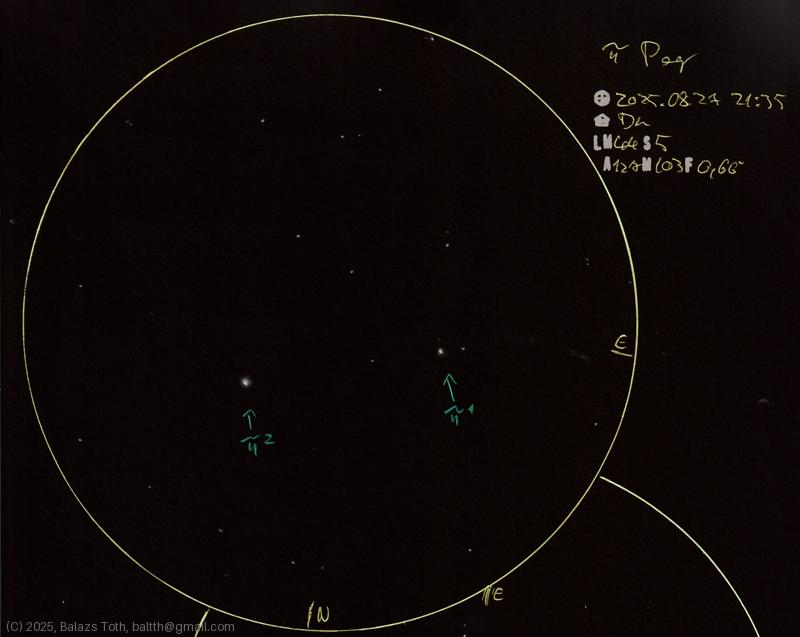 π Peg
2025.08.27 21:35
Du
LM S5
A127M103F0,66
E
π1
π2
E
N
(C) 2025, Balazs Toth, baltth@gmail.com